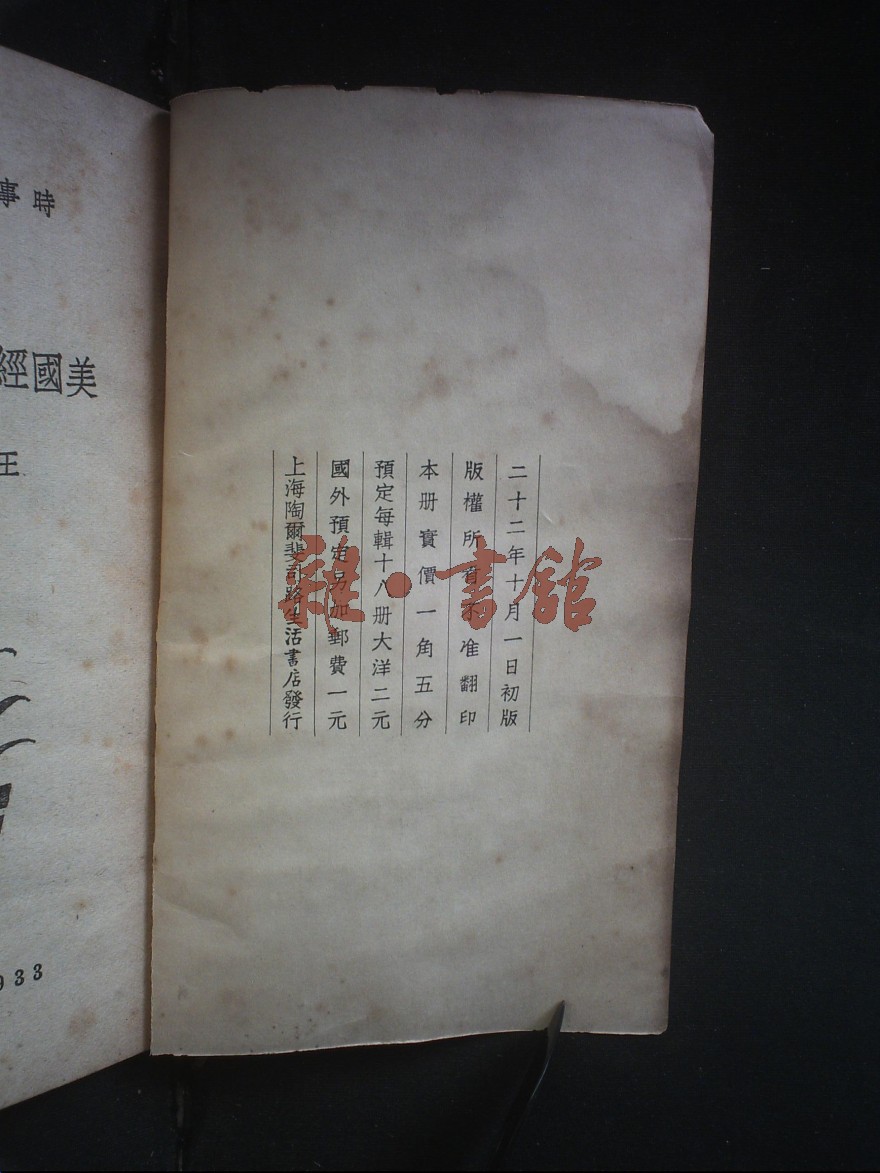 二十二年十月一日初版
版權所有不准翻印
本册實價一角五分
預定每輯十八册大洋二元
國外預定另加郵費一元
上海陶爾斐司路生活書店發行
時事
美國經
王
933
雜·書館